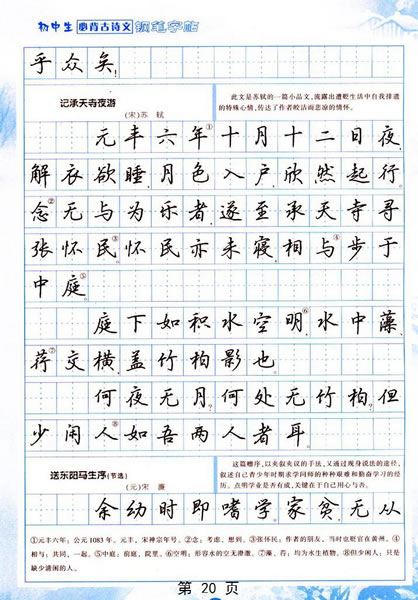 初中生必背古诗文钢笔字帖
乎众矣!
记承天寺夜游
(宋)苏 轼
此文是苏轼的一篇小品文,流露出遭贬生活中自我排遣
的特殊心情,传达了作者皎洁而悲凉的情怀。
元丰六年①十月十二日夜,
解衣欲睡,月色入户,欣然起行。
念②无与为乐者,遂至承天寺寻
张怀民③。怀民亦未寝,相与④步于
中庭⑤。
庭下如积水空明⑥,水中藻、
荇⑦交横,盖竹柏影也。
何夜无月?何处无竹柏?但
少闲人⑧如吾两人者耳。
送东阳马生序(节选)
(元)宋 濂
这篇赠序,以夹叙夹议的手法,又通过现身说法的途径,
叙述自己青少年时期求学问师的种种艰难和勤奋学习的经
历。点明学业是否有成,关键在于自己用心与否。
余幼时即嗜学。家贫,无从
①元丰六年:公元1083年。元丰,宋神宗年号。②念:考虑、想到。③张怀民:作者的朋友,当时也贬官在黄州。④
相与:共同、一起。⑤中庭:前庭,院里。⑥空明:形容水的空无澄澈。⑦藻、荇:均为水生植物。⑧但少闲人:只是
缺少清闲的人。
第 20 页